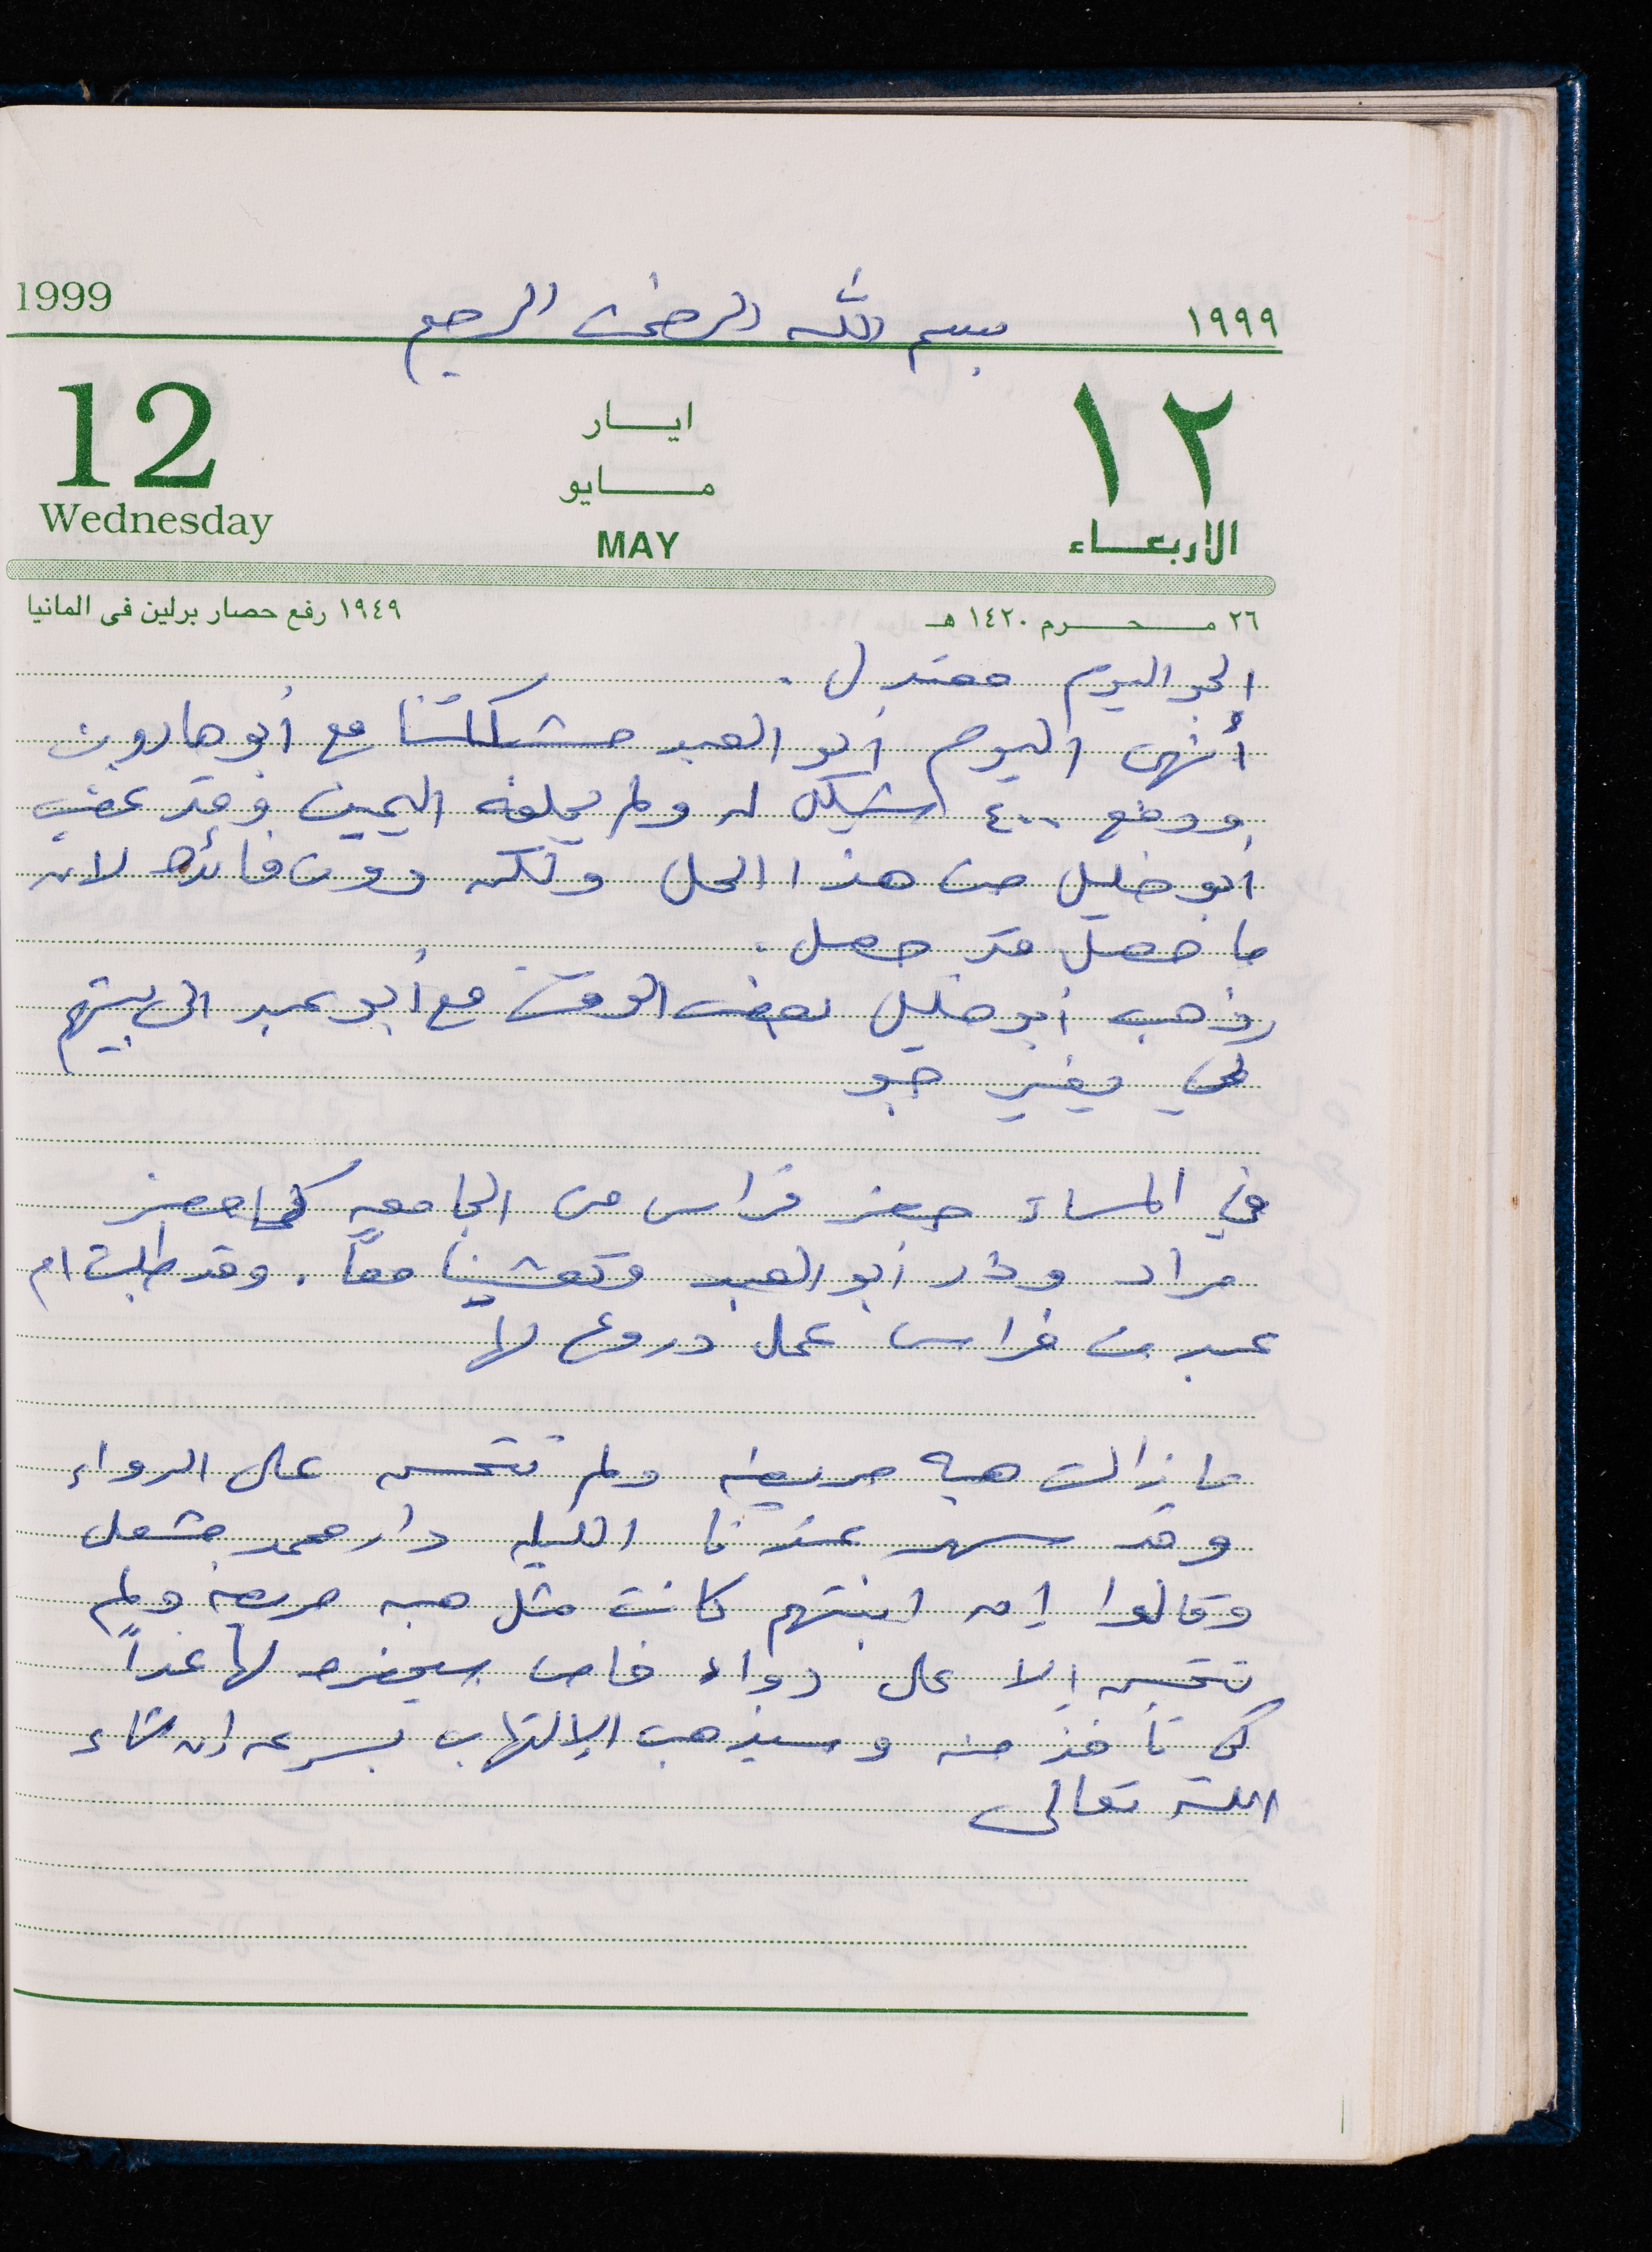 1999
١٩٩٩
بسم الله الرحمن الرحيم
12
ايـــار
١٢
مـــايو
Wednesday
MAY
الاربعـــاء
١٩٤٩ رفع حصار برلين فى المانيا
٢٦ مـــحـــرم ١٤٢٠ هـ
الجو اليوم معتدل .
أنهى اليوم أبو العبد مشكلتنا مع أبو هارون
ودفع ٤٠٠ شيكل له ولم يحلفه اليمين وقد غضب
أبو خليل من هذا الحل ولكن دون فائدة لان
ما حصل قد حصل .
وذهب أبو خليل بعض الوقت مع أبو عبد الى بيتهم
لكي يغير جو
في المساء حضر فراس من الجامعه كما حضر
مراد ودار أبو العبد وتعشينا معاً . وقد طلبت ام
عبد من فراس عمل دروع لها
ما زالت هبه مريضه ولم تتحسن على الدواء
وقد سهر عندنا الليله دار محمد مشعل
وقالوا إن ابنتهم كانت مثل هبه مريضه ولم
تتحسن إلا على دواء خاص سيحضره لها غداً
كي تأخذ منه وسيذهب الإلتهاب بسرعه إن شاء
الله تعالى